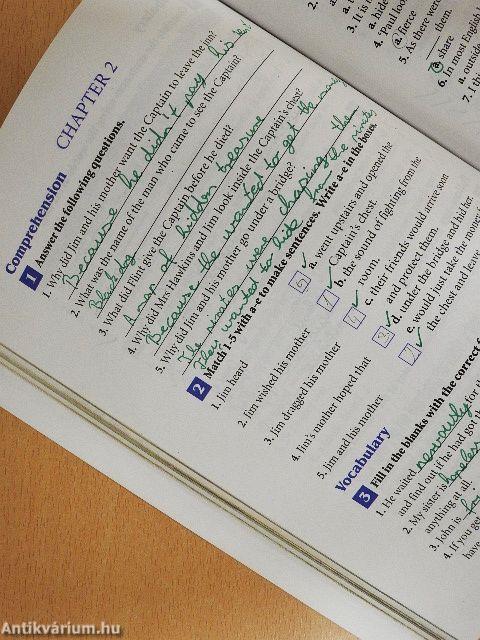 CHAPTER 2
Comprehension
1 Answer the following questions.
1. Why did Jim and his mother want the Captain to leave the inn?
Because he didn't pay his rent
2. What was the name of the man who came to see the Captain?
Blackdog
3. What did Flint give the Captain before he died?
A map of hidden treasure
4. Why did Mrs Hawkins and Jim look inside the Captain's chest?
Because the wanted to get the money
5. Why did Jim and his mother go under a bridge?
The pirates were chaping the
They wanted to hide from the pirates
2 Match 1-5 with a-e to make sentences. Write a-e in the boxes.
1. Jim heard
2. Jim wished his mother
3. Jim dragged his mother
4. Jim's mother hoped that
5. Jim and his mother
a. went upstairs and opened the
Captain's chest.
b. the sound of fighting from the
room.
c. their friends would arrive soon
and protect them.
d. under the bridge and hid her.
e. would just take the money
the chest and leave
Vocabulary
3 Fill in the blanks with the correct
1. He waited nervously for
and find out if he had got th
2. My sister is
anything at all.
3. John is
4. If you get
have
2.
a.
3. It is
a. hide
4. 'Paul loo
a. fierce
5. As there were
them.
a. share
6. In most English
a. outside
7. I th
Antikvárium.hu